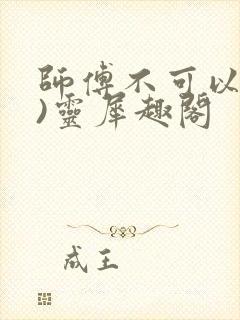 師傅不可以
)靈犀趣閣
成王